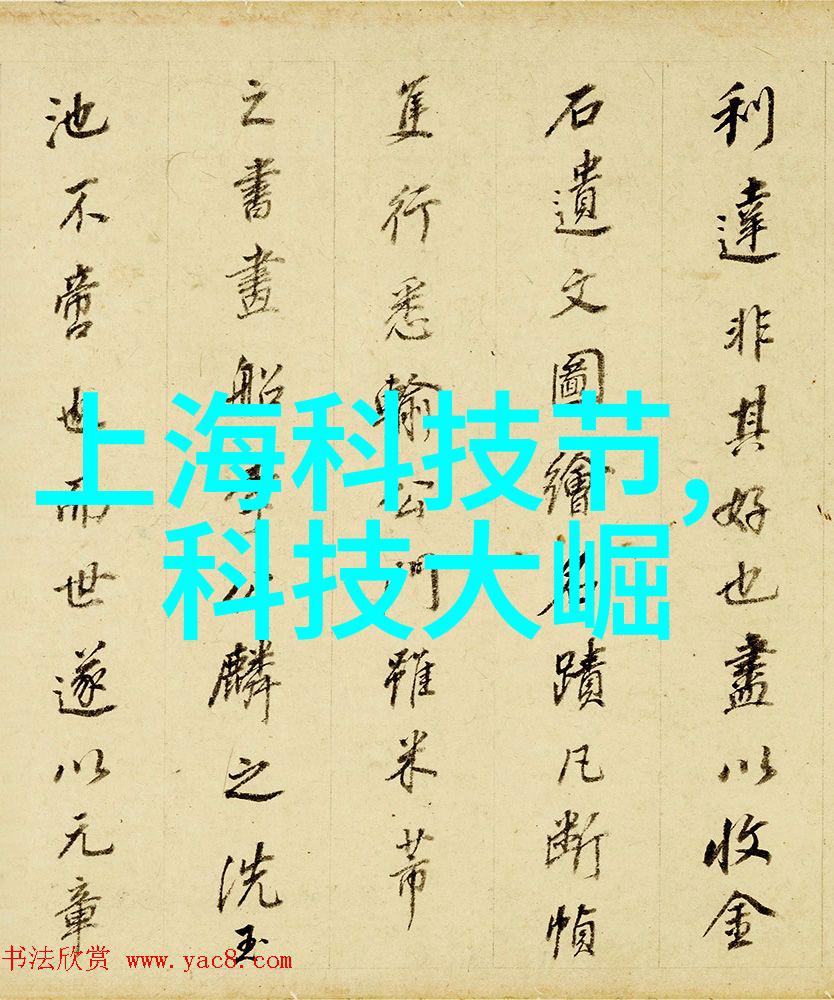 利達非其好也盡以收金
石遺文圖繪名蹟凡斷幀
隻行悉輸公門雖米芾
之書畫船李公麟之洗玉
池不啻也而世遂以元章
上海科技节,
科技大崛
书法欣赏 www.yac8.com